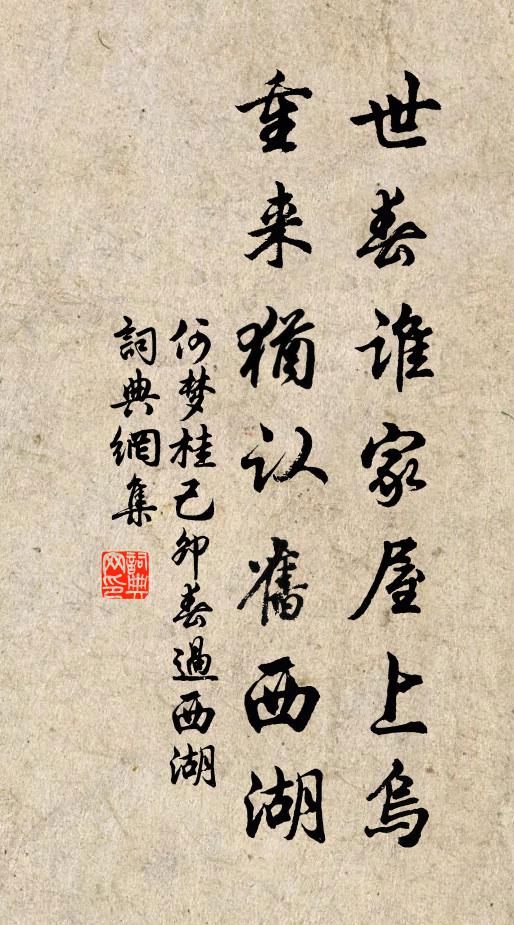 世春谁家屋上乌
重来犹认旧西湖
何梦桂己卯春過西湖
詞典網集
詞典网印